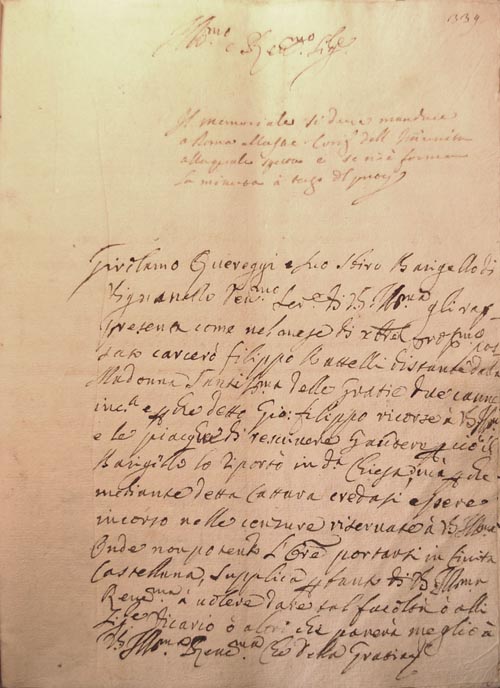 339
Ill.mo e Rev.mo Sig.re
Il memoriale si deve mandare
a Roma alla Sac. Cong. dell'Immunità
alla quale spetta e se ne è formata
la minuta à tergo del p͞nte
Girolamo Quereggi e suo sbiro Barigello di
Vignanello Dev.mi Ser.ri di V.S. Ill.ma gli rap-
presenta come nel mese di pros.mo pas
sato carcerò Filippo distante dalla
Madonna Santiss.ma delle Gratie due canne
inc.a e p che detto Gio: Filippo ricorse à V.S. Ill.ma
e le piacque di p ciò il
Barigello lo riportò in d.a Chiesa, ma p che
mediante detta cattura credasi essere
incorso nelle censure riservate à V.S. Ill.ma
Onde non potendo l'Ore portarsi in Civita
Castellana, supplica p tanto di V.S. Ill.ma
Rev.ma à volere dare tal facoltà ò alli
Vicario ò altri che parerà meglio à
V.S. Ill.ma e Rev.ma Che della Gratia